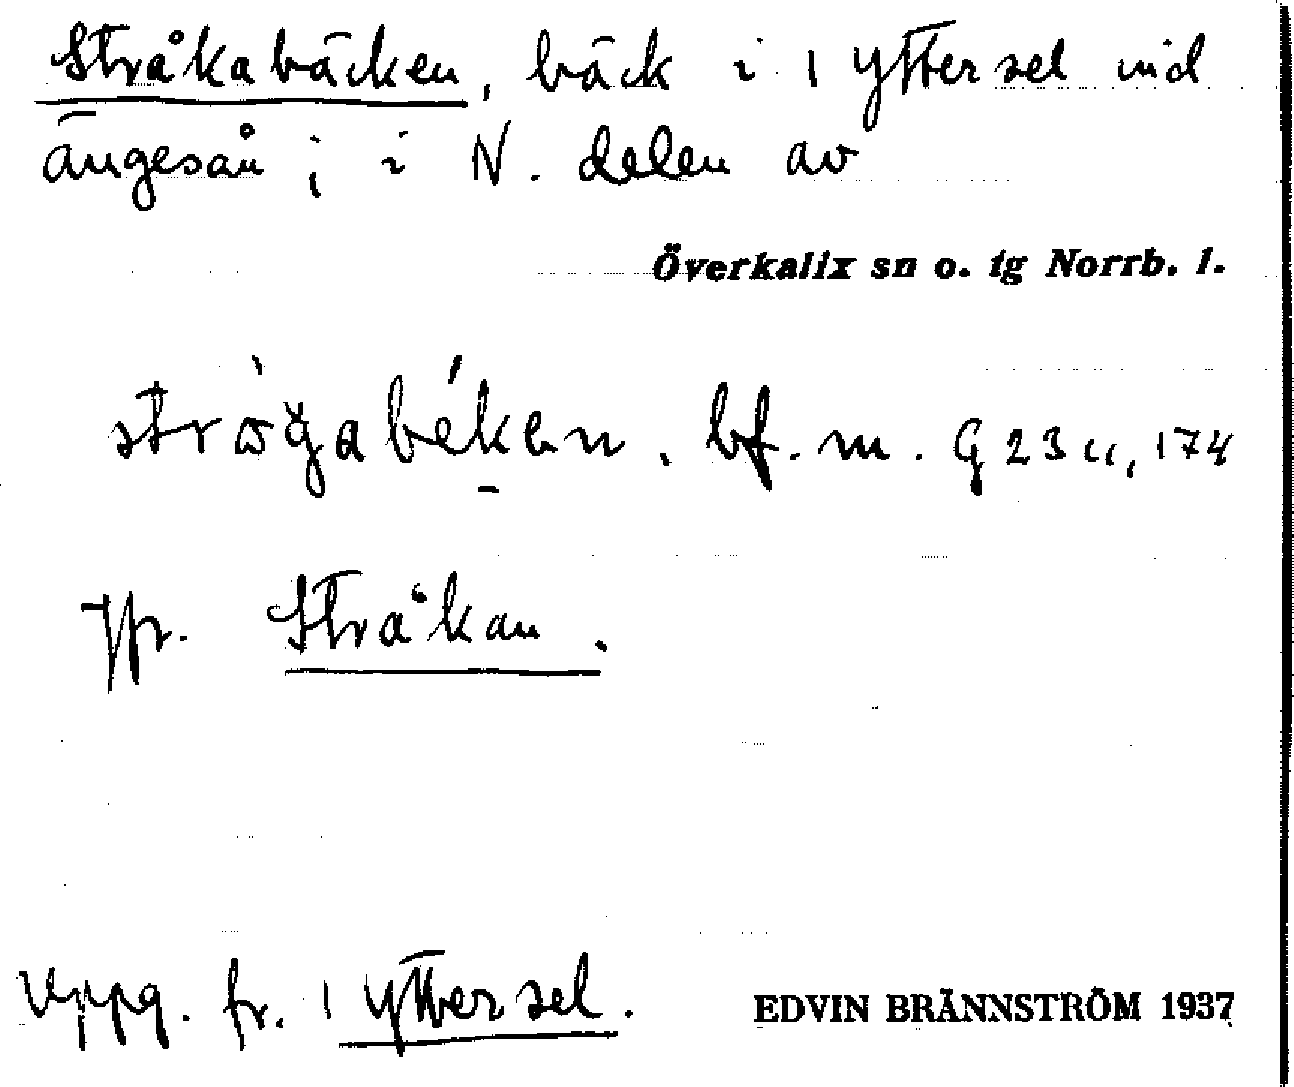 Stråkabäcken, bäck i 1 Yttersel vid
ängesån; i N. delen av
Överkalix sn o. tg Norrb. l.
bf. m. G 23 u, 174
Jfr. Stråkan.
Uppg. fr. 1 Yttersel.
EDVIN BRÄNNSTRÖM 1937